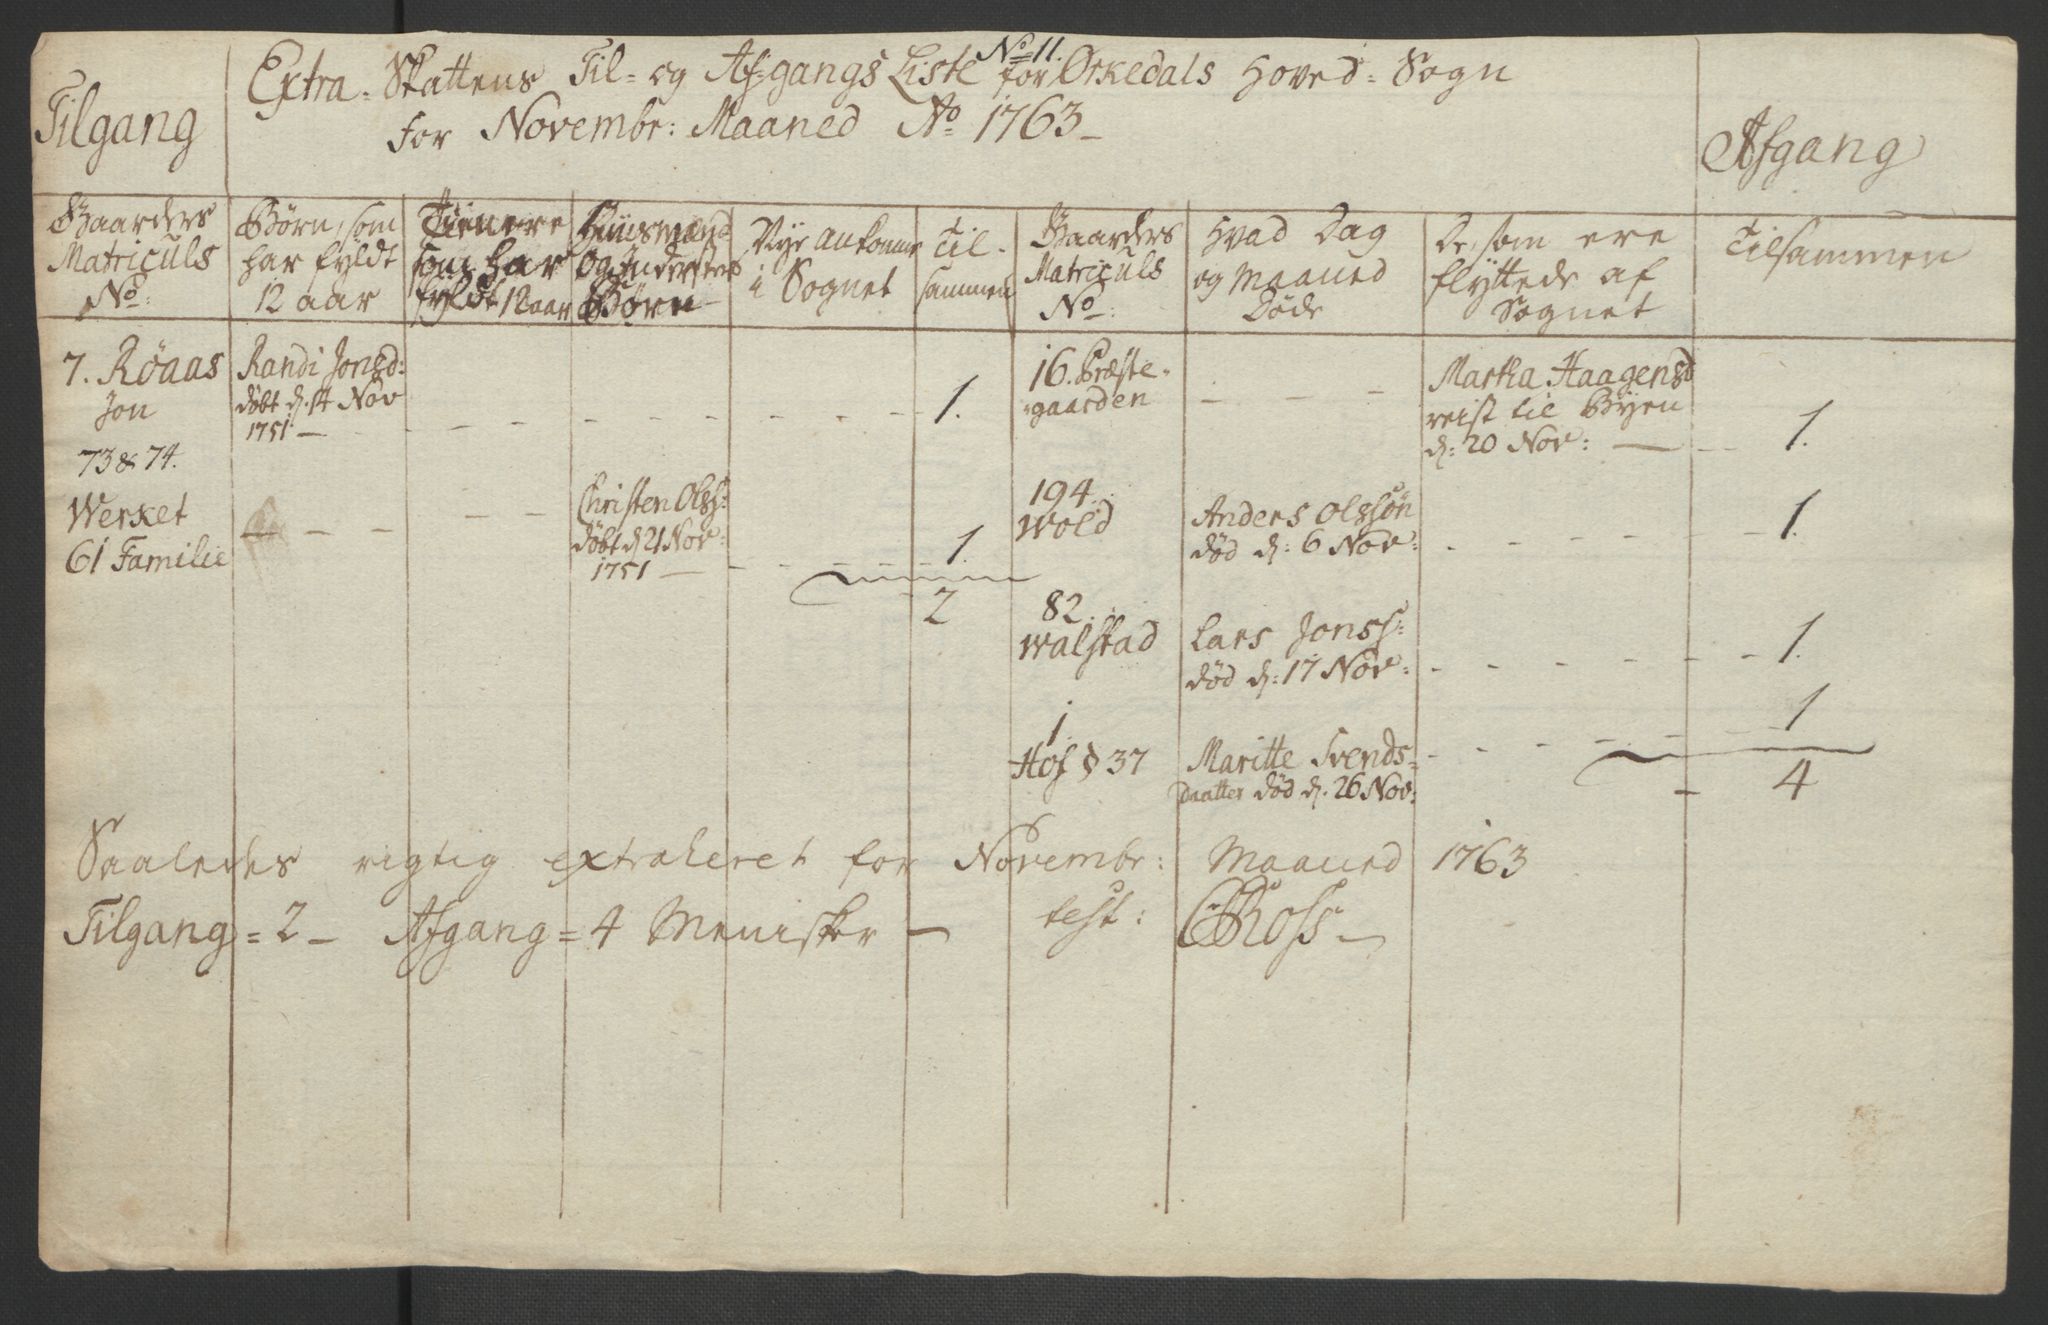 No 11.
Tilgang
Extra-Skattens Til- og Af-gangs Liste for Orkedals Hoved-Sogn
for Novembr: Maaned Ao 1763
Afgang
Gaarders Matriculs No:
Børn, som har fyldt 12 aar
Tienere som har fyldt 12 aar
Huusmænd og Indersters Børn
Nye ankomne i Sognet
Til-sammen
Gaarders Matriculs No:
Hvad Dag og Maaned Døde
De, som ere flyttede af Sognet
Tilsammen
7. Röaas
Jon
Randi Jonsd:
døbt d. 14 Nov
1751 —
1.
16. Præste-
-gaarden
Martha Haagensd
reist til Byen
d: 20 Nov: —
1.
73 & 74.
Werket
61 Familie
Christen Olss:
døbt d 21 Nov:
1751 —
1.
2
194.
Wold
Anders Olssøn
død d: 6 Nov:
1.
82.
Walstad
Lars Jonss:
død d: 17 Nov:
1.
1.
Hof § 37
Maritte Svends-
Daatter død d. 26 Nov:
1
4
Saaledes rigtig extraheret for Novembr: Maaned 1763
Tilgang = 2 — Afgang = 4 Menisker —
test: Ross